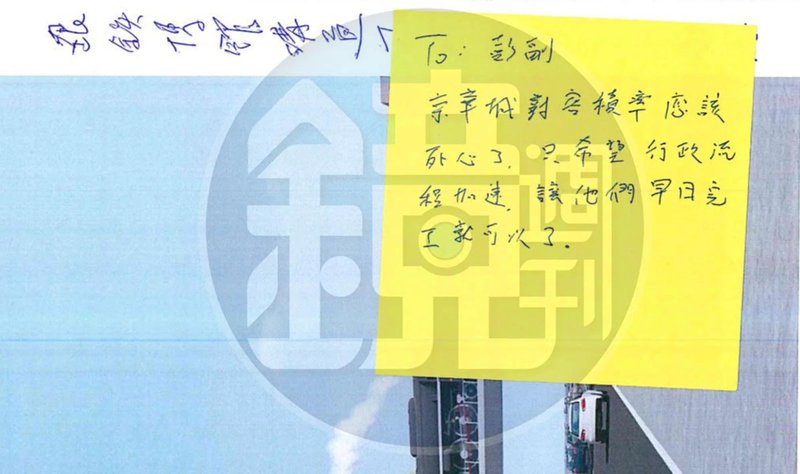 To: 彭副
京華城對容積率應該
死心了, 只希望行政流
程加速, 讓他們早日完
工就可以了.
鏡週刊